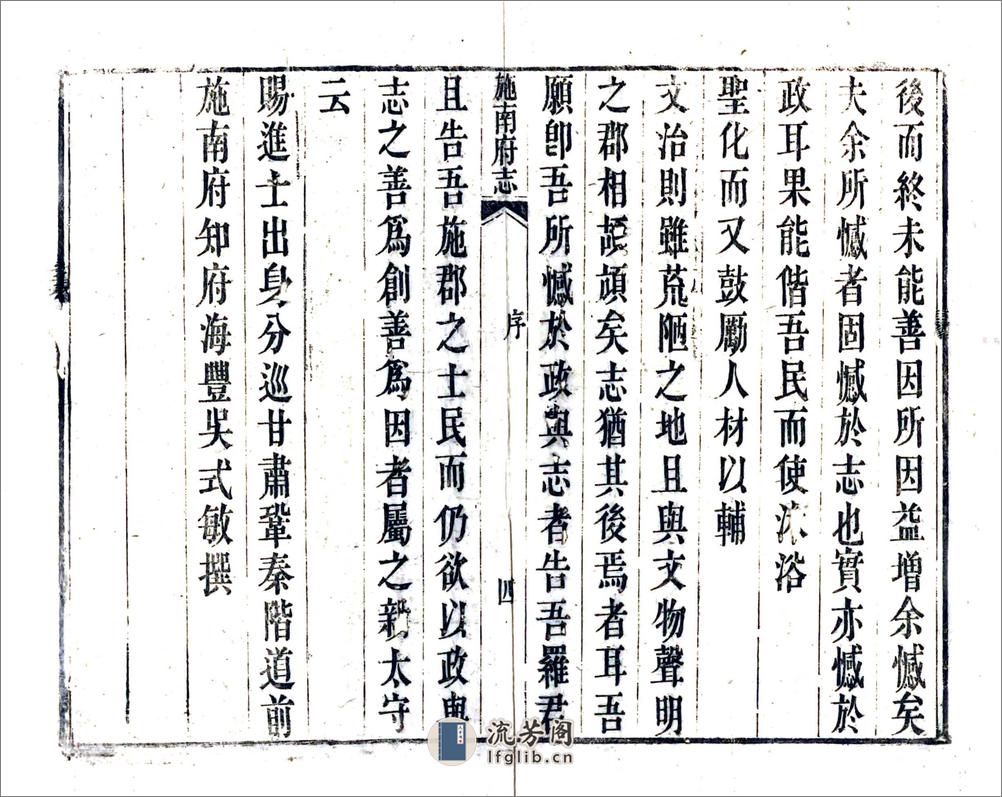 後而終未能善因所因益增余憾矣
夫余所憾者固憾於志也實亦憾於
政耳果能偕吾民而使沐浴
聖化而又鼓勵人材以輔
文治則雖荒陋之地且與文物聲明
之郡相頡頏矣志猶其後焉者耳吾
願卽吾所憾於政與志者告吾羅君
施南府志 序 四
且告吾施郡之士民而仍欲以政與
志之善爲創善爲因者屬之新太守
云
賜進士出身分巡甘肅鞏秦階道前
施南府知府海豐吳式敏撰
流芳阁
lfglib.cn